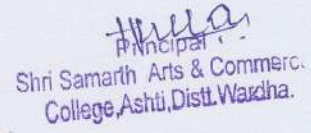 Principal
Shri Samarth Arts & Commerc.
College, Ashti, Distt. Wardha.